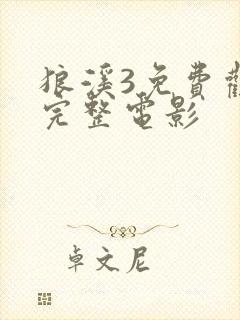 狼溪3免費觀
完整電影
卓文尼